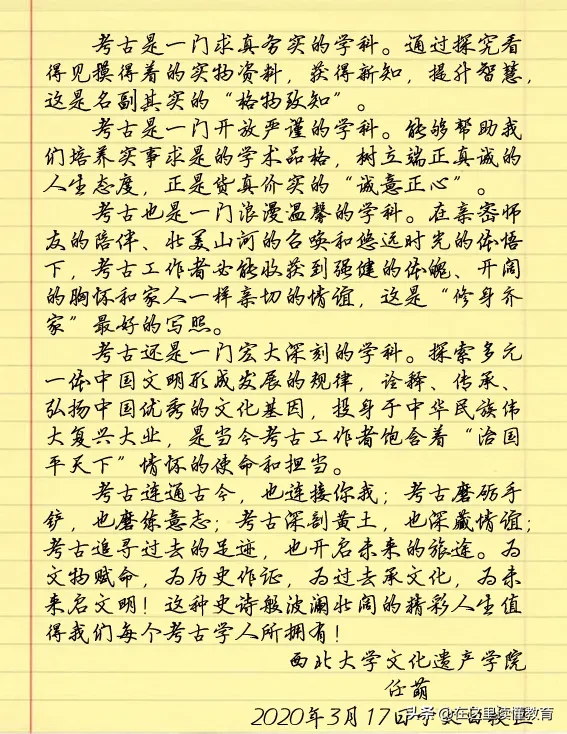 考古是一门求真务实的学科。通过探究看
得见摸得着的实物资料，获得新知，提升智慧，
这是名副其实的“格物致知”。
考古是一门开放严谨的学科。能够帮助我
们培养实事求是的学术品格，树立端正真诚的
人生态度，正是货真价实的“诚意正心”。
考古也是一门浪漫温馨的学科。在亲密师
友的陪伴、壮美山河的召唤和悠远时光的体悟
下，考古工作者必能收获到强健的体魄、开阔
的胸怀和家人一样亲切的情谊，这是“修身齐
家”最好的写照。
考古还是一门宏大深刻的学科。探索多元
一体中国文明形成发展的规律，诠释、传承、
弘扬中国优秀的文化基因，投身于中华民族伟
大复兴大业，是当今考古工作者饱含着“治国
平天下”情怀的使命和担当。
考古连通古今，也连接你我；考古磨砺手
铲，也磨炼意志；考古深剖黄土，也深藏情谊；
考古追寻过去的足迹，也开启未来的旅途。为
文物赋命，为历史作证，为过去承文化，为未
来启文明！这种史诗般波澜壮阔的精彩人生值
得我们每个考古学人所拥有！
西北大学文化遗产学院
任萌
2020年3月17日
头条 @在这里读懂教育